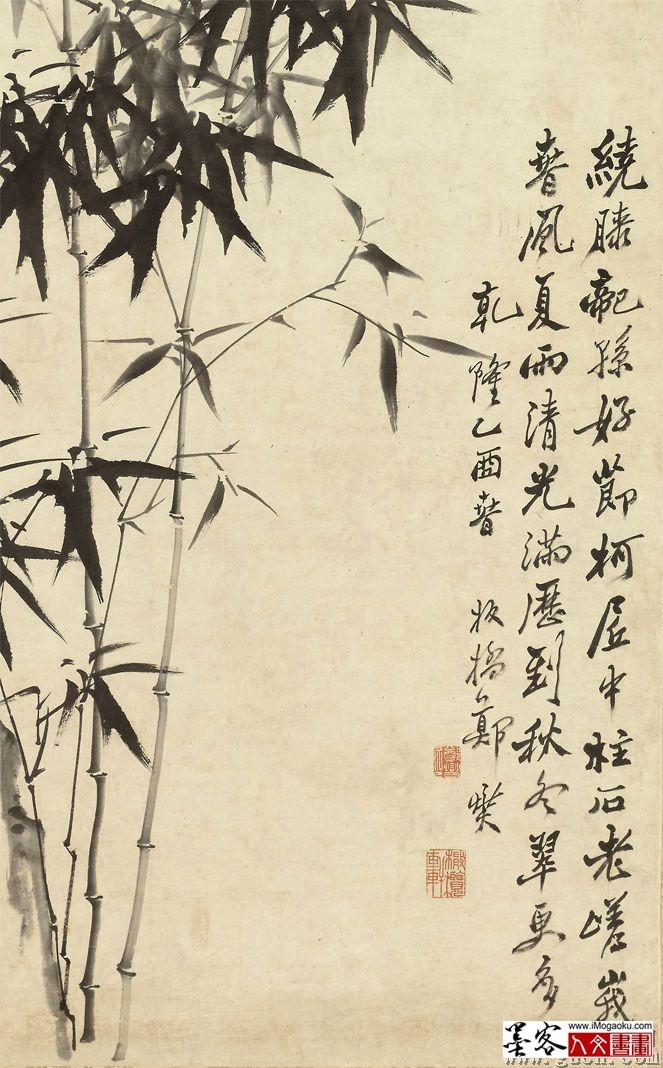 繞膝龍孫好節柯居中柱石老嵯峩
春風夏雨清光滿歷到秋冬翠更多
乾隆乙酉春 板橋鄭燮
橄欖軒
www.iMogaoku.com
墨客人文書畫